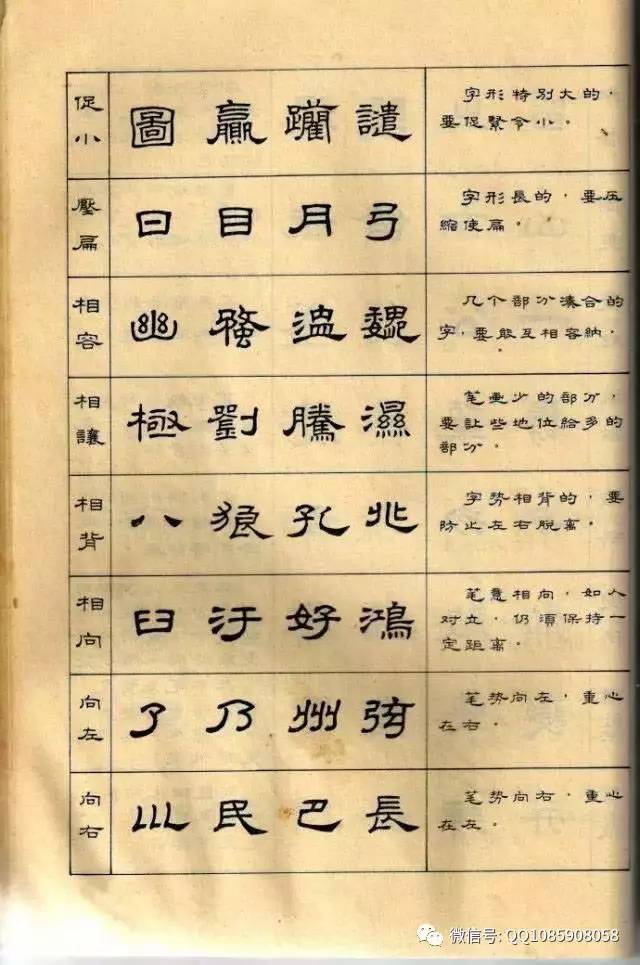 促小
圖 贏 譴
字形特別大的，
要促緊令小。
壓扁
曰 目 月 弓
字形長的，要压
縮使扁。
相容
幽 魏
几个部分凑合的
字，要能互相容納。
相讓
極 劉 騰 濕
笔画少的部分，
要让些地位給多的
部分。
相背
八 狼 孔 兆
字势相背的，要
防止左右脫离。
相向
臼 汙 好 鴻
笔意相向，如人
对立，仍須保持一
定距离。
向左
了 乃 州 弦
笔势向左，重心
在右。
向右
川 民 巴 長
笔势向右，重心
在左。
微信号: QQ1085908058